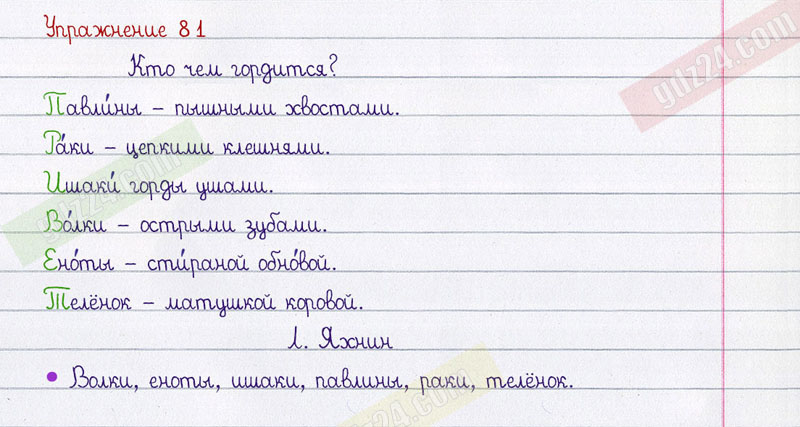 Упражнение 81
Кто чем гордится?
Павли́ны – пышными хвостами.
Ра́ки – цепкими клешнями.
Ишаки́ горды ушами.
Во́лки – острыми зубами.
Ено́ты – сти́раной обно́вой.
Телёнок – матушкой коровой.
Л. Яхнин
• Волки, еноты, ишаки, павлины, раки, телёнок.
gdz24.com
gdz24.com
gdz24.com